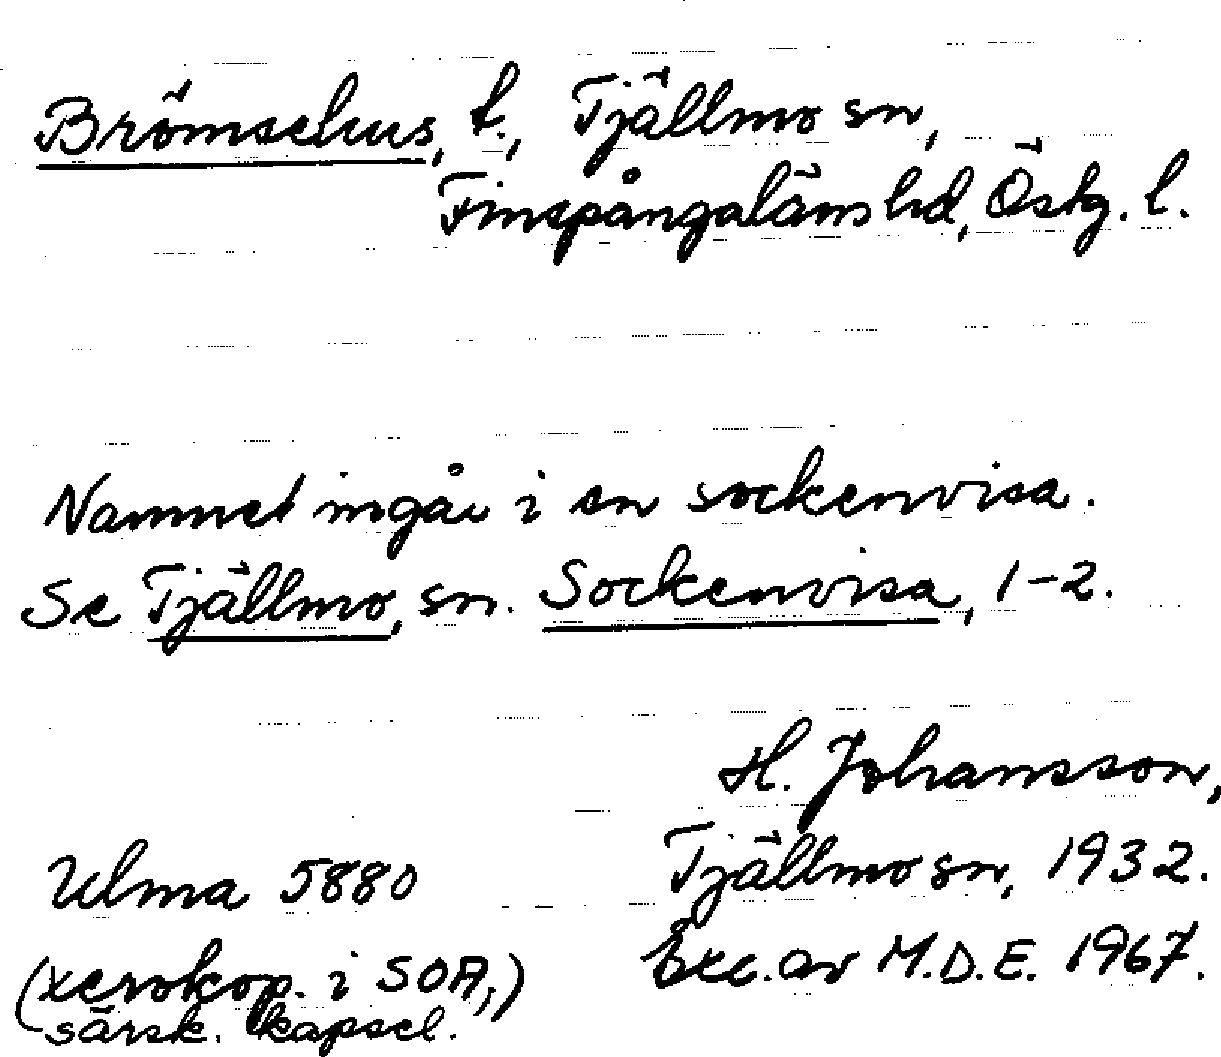 Brömsehus, t., Tjällmo sn,
Finspångaläns hd, Östg. l.
Namnet ingår i en sockenvisa.
Se Tjällmo, sn. Sockenvisa, 1-2.
H. Johansson,
Ulma 5880 Tjällmo sn, 1932.
(xerokop. i SOA,) Exc. av M.D.E. 1967.
särsk. kapsel.